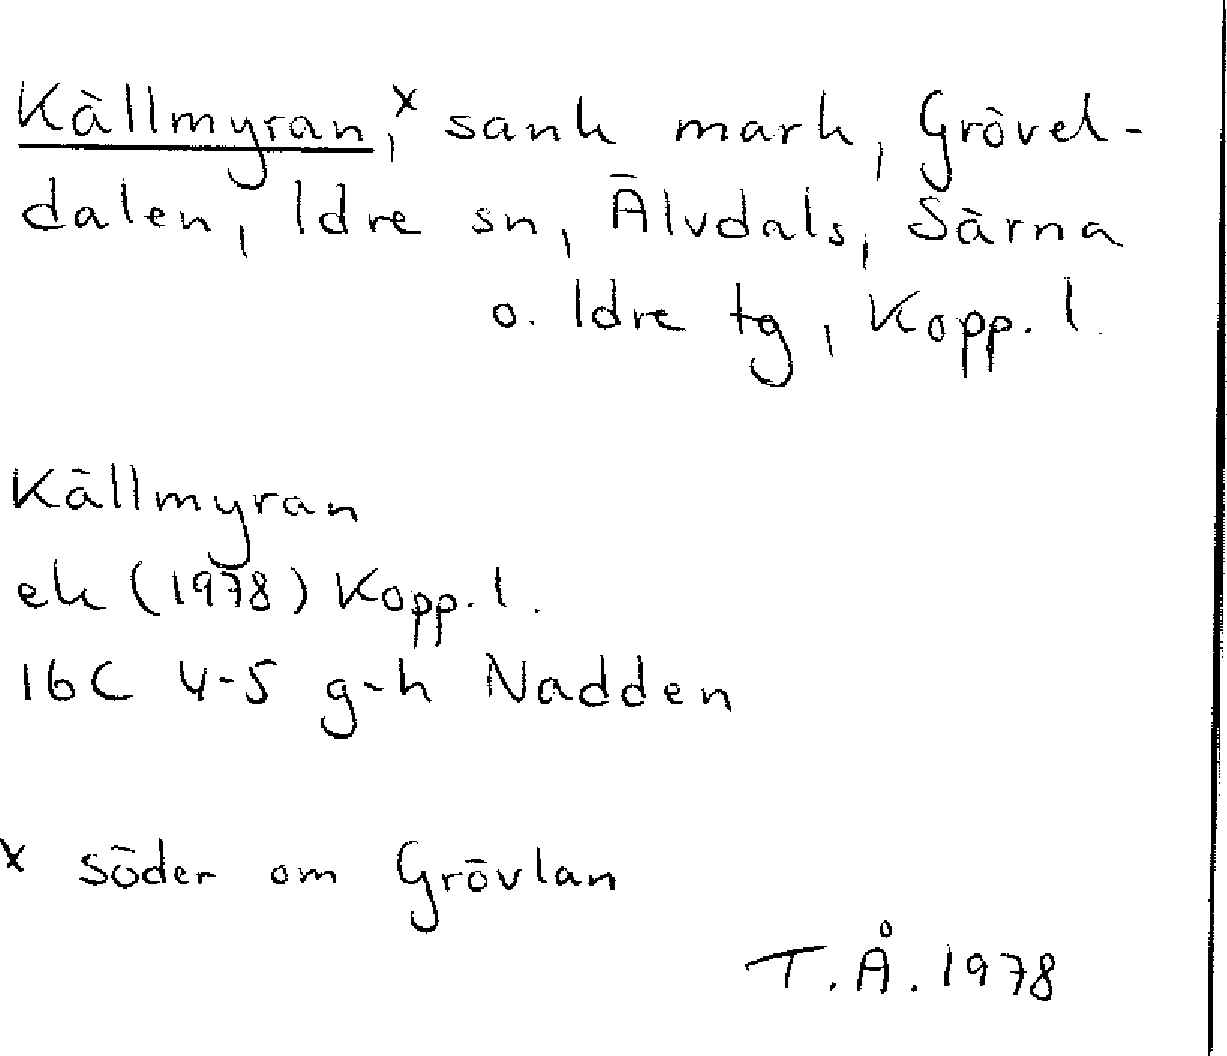 Källmyran,ˣ sank mark, Grövel-
dalen, Idre sn, Älvdals, Särna
o. Idre tg, Kopp. l.
Källmyran
ek (1978) Kopp. l.
16C 4-5 g-h Nadden
x söder om Grövlan
T.Å. 1978